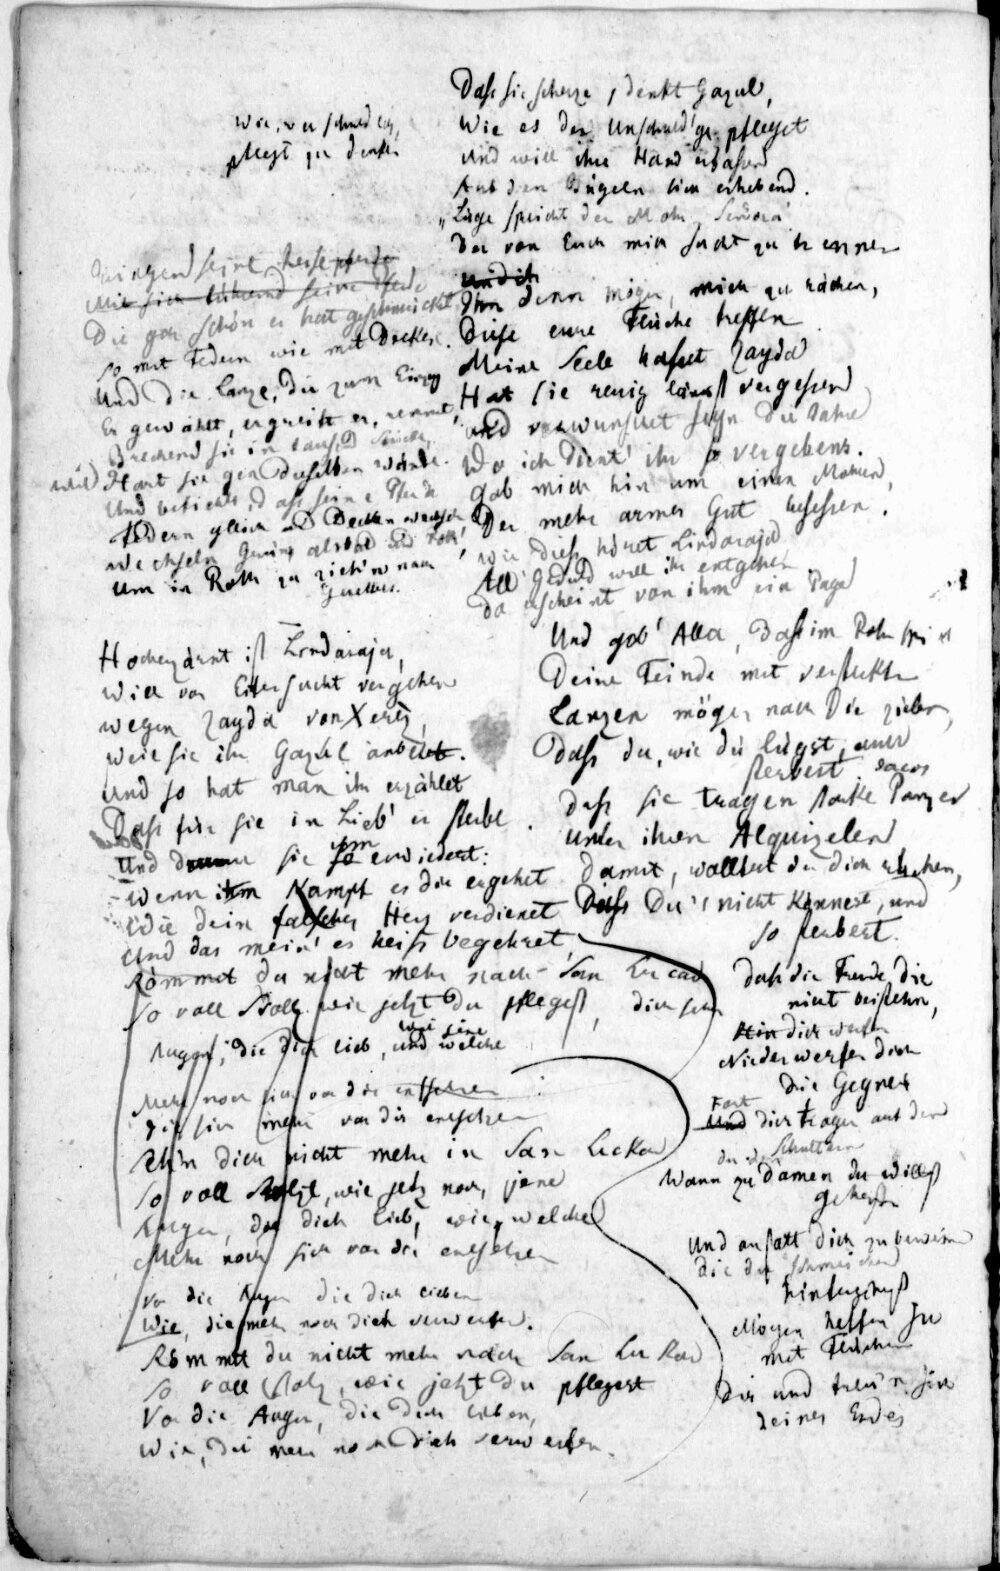 Wie, wer schuldlos,
pflegt zu denken
Zwingend seine Pferde
Die gar schön er hat geschmückt
So mit Federn wie mit Decken.
Und die Lanze, die zum Einzug
Er gewählt, ergreift er, rennet,
Brechend sie in tausend Stücke,
Hart sie gen dieselben Wände.
Und befiehlt, daß seine Pferde
Federn gleich und Decken wechseln
wechseln
Um in Roth zu ziehn nach
Hocherzürnt ist Lindaraja,
Will vor Eifersucht vergehen
wegen Zayda von Xerez,
weil sie ihr Gazul anbetet.
und so hat man ihr erzählet
Daß für sie in Lieb' er sterbe.
Und sie ihm erwiedert:
Wenn im Kampf es dir ergehet
Wie dein falsches Herz verdienet
Und das mein' es heiß begehret,
Kömmst du nicht mehr nach San Lucar
So voll Stolz wie jetzt du pflegest,
Augen, die dich lieb, und welche
Mehr noch sich vor dir entsetzen
die sich mehr vor dir entsetzen
Sehn dich nicht mehr in San Lucar
So voll Stolz, wie jetzt noch, jene
Augen, die dich lieb, wie welche
Mehr noch sich vor dir entsetzen
vor die Augen die dich lieben
Wie, die mehr noch dich verwerfen.
Kömmst du nicht mehr nach San Lucar
So voll Stolz, wie jetzt du pflegest
Vor die Augen, die dich lieben,
Wie, die mehr noch dich verwerfen.
Daß sie scherze, denkt Gazul,
Wie es der Unschuld'ge pfleget
Und will ihre Hand erfassen
Auf den Bügeln sich erhebend.
„Lüge spricht der Mohr, Señora
Der von Euch mich sucht zu trennen
und ich
Ihn denn mögen, mich zu rächen,
Diese eure Flüche treffen
Meine Seele hasset Zayda
Hat sie reuig längst vergessen
und verwünschet seyn die Jahre
Wo ich dient' ihr so vergebens.
Gab mich hin um einen Mohren,
Der mehr armes Gut besessen.
Wie dieß höret Lindaraja
All' Geduld will ihr entgehen
Da erscheint von ihm ein Page
Und gäb' Alla, daß im Rohrspiel
Deine Feinde mit versteckten
Lanzen mögen nach dir zielen,
Daß du, wie du lügst, auch
sterbest
Daß sie tragen starke Panzer
Unter ihren Alquizelen
Damit, wolltest du dich rächen,
Daß Du's nicht könnest, und
so sterbest.
Daß die Freunde dir
nicht beistehn,
Hin dich werfen
Niederwerfen dich
die Gegner
Fort
Und dich tragen auf den
Schultern
Wann zu Damen du willst
gehen
Und anstatt dich zu beweinen
die du
hintergehst
Mögen helfen sie
mit Flüchen
Dir und freu'n sich
deines Endes